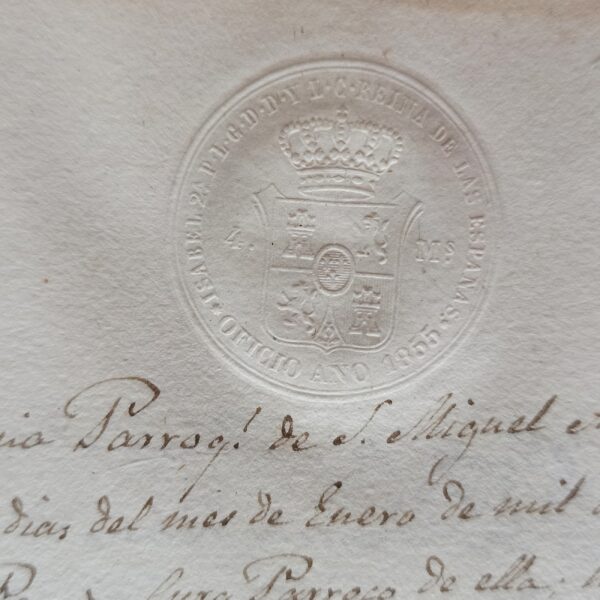 ISABEL 2ª P. L. G. D. D. Y L. C. REINA DE LAS ESPAÑAS
4. Ms
OFICIO AÑO 1855
Parroq.l de S. Miguel
dias del mes de Enero de mil
Cura Parroco de ella;